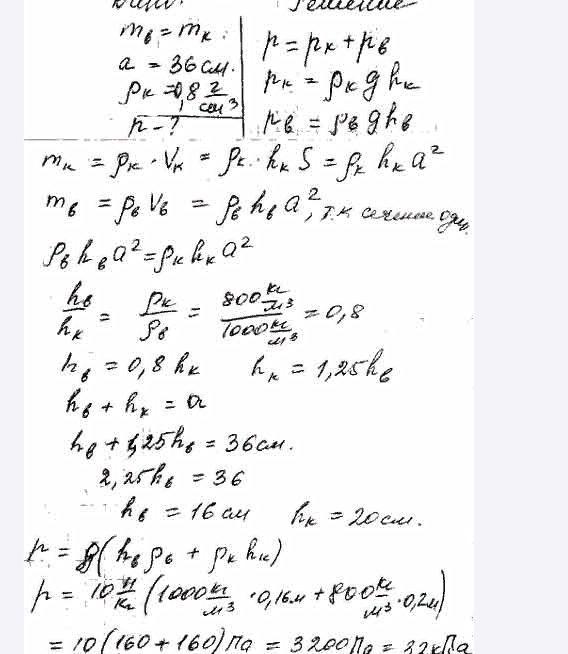 Решение
m_в = m_к.
a = 36 см.
ρ_к = 0,8 г/см³
p - ?
p = p_к + p_в
p_к = ρ_к g h_к
p_в = ρ_в g h_в
m_к = ρ_к · V_к = ρ_к · h_к S = ρ_к h_к a²
m_в = ρ_в V_в = ρ_в h_в a², т.к сечение один.
ρ_в h_в a² = ρ_к h_к a²
h_в/h_к = ρ_к/ρ_в = 800 кг/м³ / 1000 кг/м³ = 0,8
h_в = 0,8 h_к h_к = 1,25 h_в
h_в + h_к = a
h_в + 1,25 h_в = 36 см.
2,25 h_в = 36
h_в = 16 см h_к = 20 см.
p = g (h_в ρ_в + ρ_к h_к)
p = 10 Н/кг (1000 кг/м³ · 0,16 м + 800 кг/м³ · 0,2 м)
= 10 (160 + 160) Па = 3200 Па = 3,2 кПа